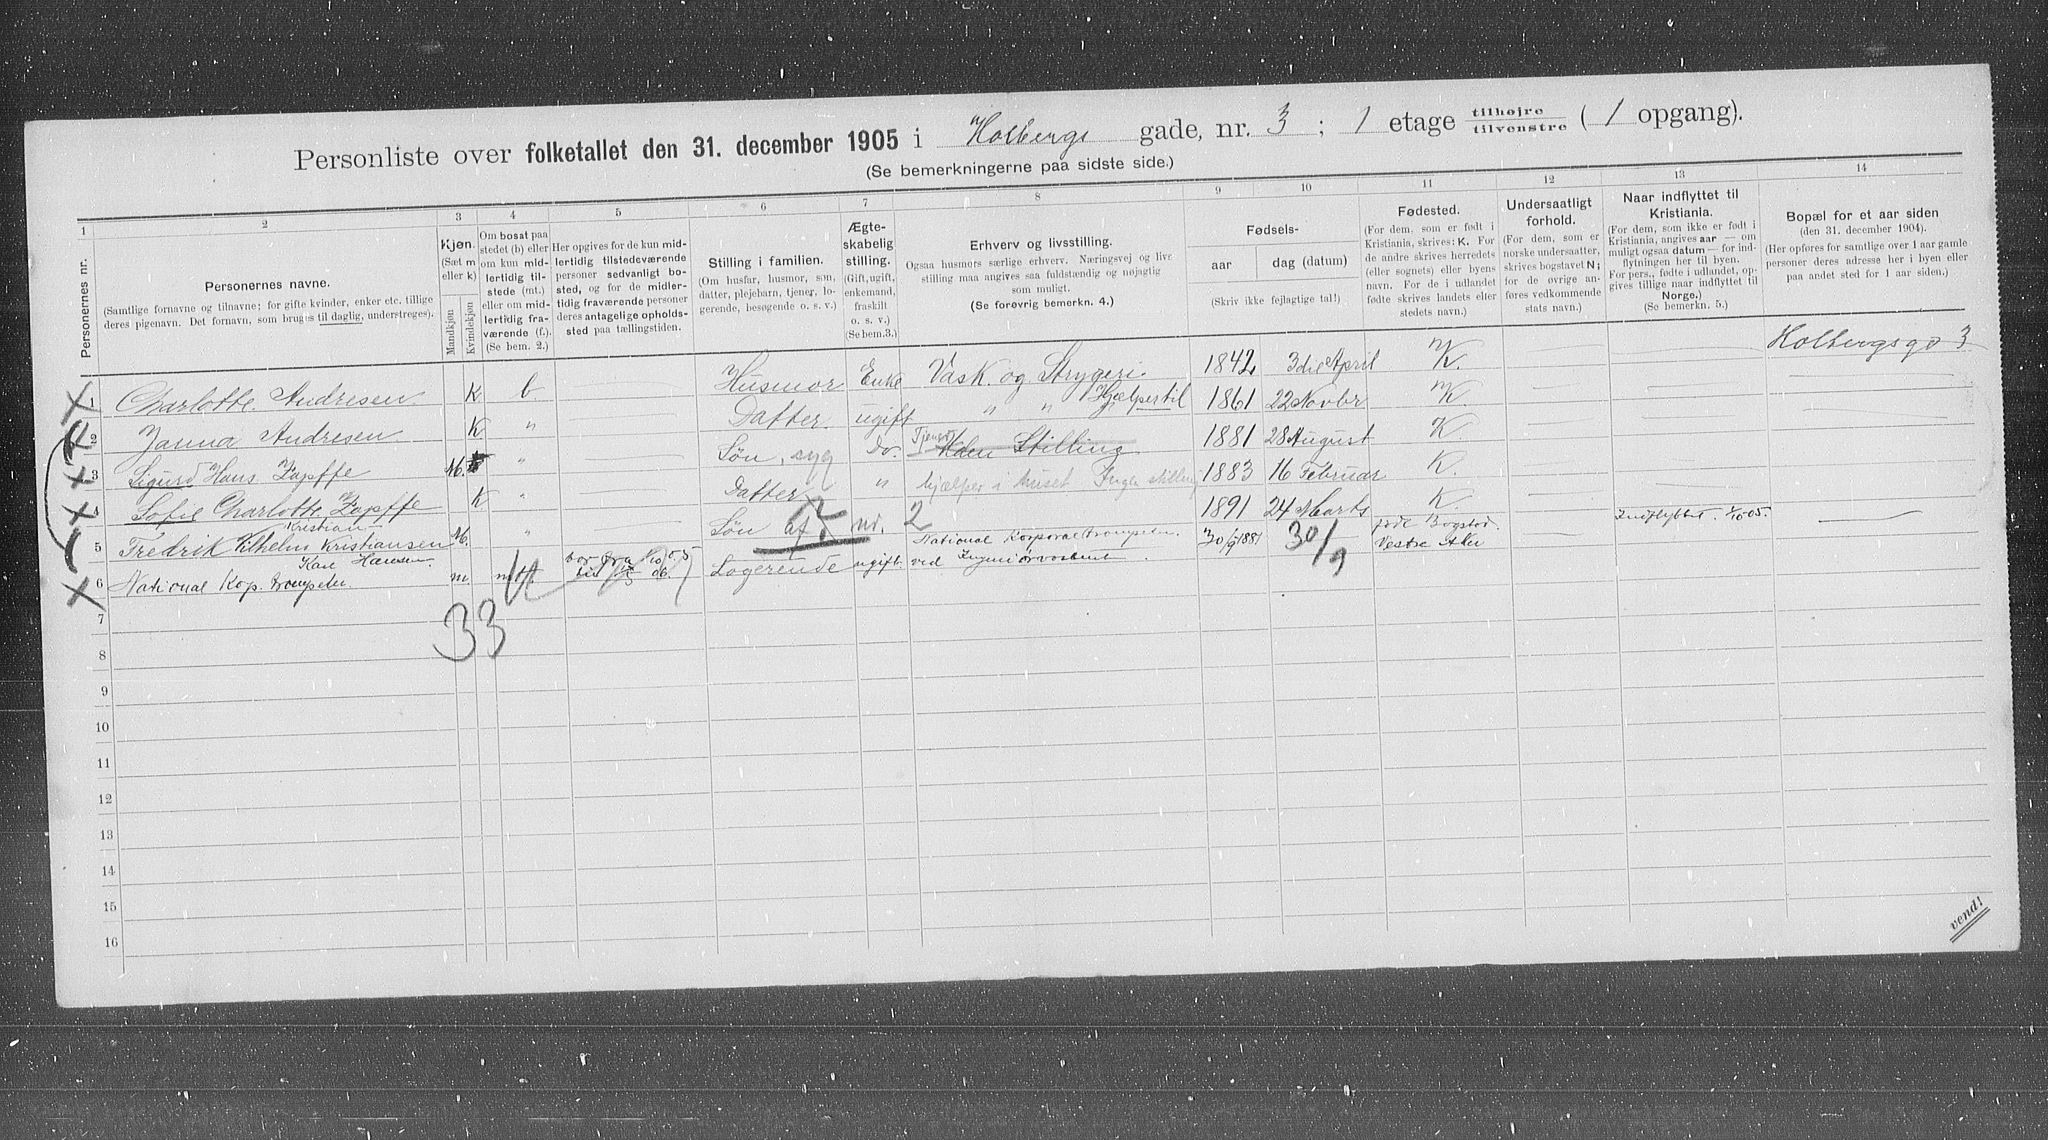 Personliste over folketallet den 31. december 1905 i Holbergs gade, nr. 3 ; 1 etage tilhøjre / tilvenstre ( 1 opgang).
(Se bemerkningerne paa sidste side.)
1 2 3 4 5 6 7 8 9 10 11 12 13 14
Personernes nr.
Personernes navne.
(Samtlige fornavne og tilnavne; for gifte kvinder, enker etc. tillige
deres pigenavn. Det fornavn, som bruges til daglig, understreges).
Kjøn.
(Sæt m
eller k)
Mandkjøn
Kvindekjøn
Om bosat paa
stedet (b) eller
om kun mid-
lertidig til-
stede (mt.)
eller om mid-
lertidig fra-
værende (f.).
(Se bem. 2.)
Her opgives for de kun mid-
lertidig tilstedeværende
personer sedvanligt bo-
sted, og for de midler-
tidig fraværende personer
deres antagelige opholds-
sted paa tællingstiden.
Stilling i familien.
(Om husfar, husmor, søn,
datter, plejebarn, tjener, lo-
gerende, besøgende o. s. v.)
Ægte-
skabelig
stilling.
(Gift, ugift,
enkemand,
fraskilt
o. s. v.)
(Se bem.3.)
Erhverv og livsstilling.
Ogsaa husmors særlige erhverv. Næringsvej og live
stilling maa angives saa fuldstændig og nøjagtig
som muligt.
(Se forøvrig bemerkn. 4.)
Fødsels-
aar
dag (datum)
(Skriv ikke fejlagtige tal!)
Fødested.
(For dem, som er født i
Kristiania, skrives: K. For
de andre skrives herredets
(eller sognets) eller byens
navn. For de i udlandet
fødte skrives landets eller
stedets navn.)
Undersaatligt
forhold.
(For dem, som er
norske undersaatter,
skrives bogstavet N;
for de øvrige an-
føres vedkommende
stats navn.)
Naar indflyttet til
Kristiania.
(For dem, som ikke er født i
Kristiania, angives aar — om
muligt ogsaa datum — for ind-
flytningen her til byen.
For pers., fødte i udlandet, op-
gives tillige naar indflyttet til
Norge.)
(Se bemerkn. 5.)
Bopæl for et aar siden
(den 31. december 1904).
(Her opføres for samtlige over 1 aar gamle
personer deres adresse her i byen eller
paa andet sted for 1 aar siden.)
X 1 Charlotte Andresen K b Husmor Enke Vask. og Strygeri. 1842 3die April K. Holbergsgd 3
X 2 Janna Andresen K " Datter. ugift " " Hjælpertil 1861 22 Novbr K
X 3 Sigurd Hans Zapffe M. " Søn, syg Do. Uden Stilling 1881 28 August K
X 4 Sofie Charlotte Zapffe K " Datter " hjælper i huset Ingen stilling 1883 16 Februar K.
Kristian
5 Fredrik Vilhelm Kristiansen M. " Søn af nr. 2 1891 24 Marts K.
Karl Hansen.
X 6 National Kop. trompeter m. mt. Logerende ugift. National Korporal trompeter. ved Ingeniørvaabnet. 30/9 1881 30/9 født Bogstad. Vestre Aker Indflyttet.
33
7
8
9
10
11
12
13
14
15
16
vend!